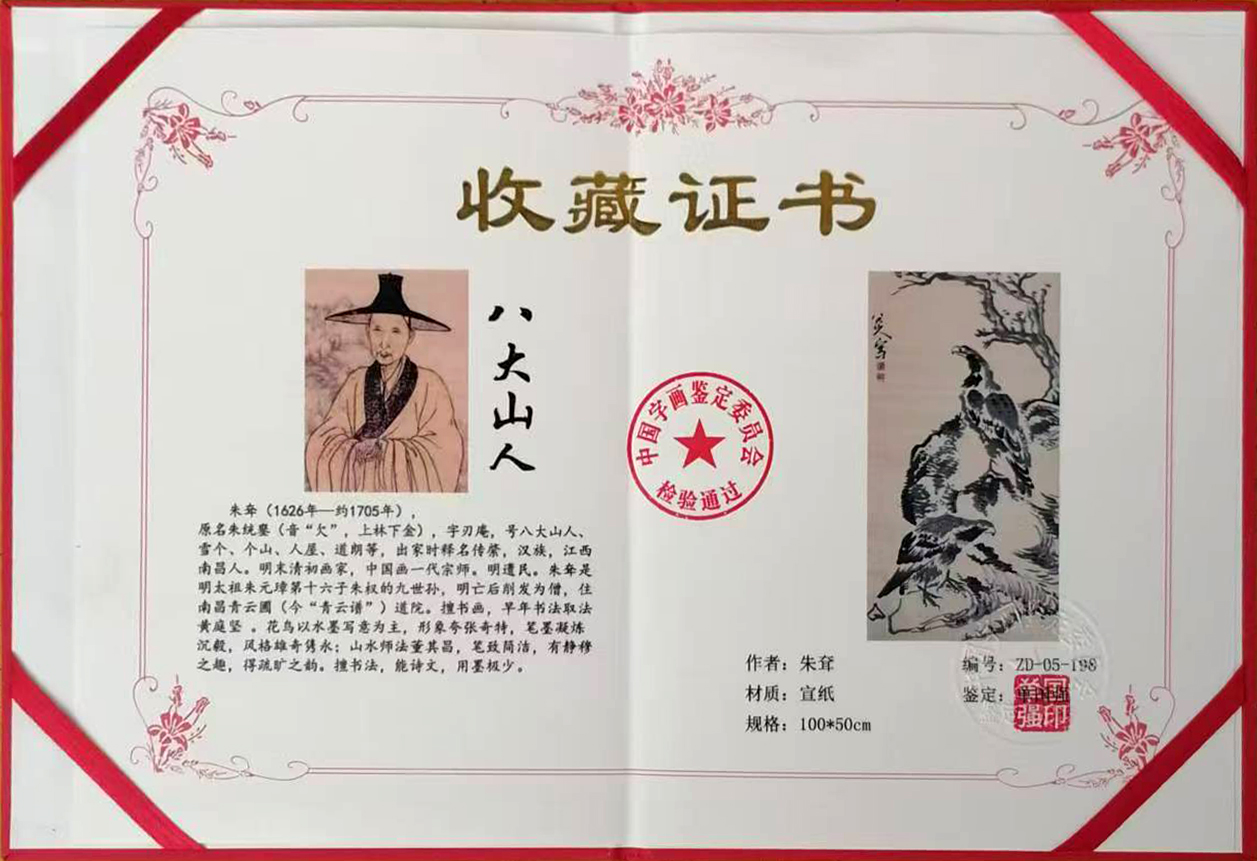 收藏证书
八大山人
朱耷（1626年—约1705年），
原名朱统𨨗（音“欠”，上林下金），字刃庵，号八大山人、
雪个、个山、人屋、道朗等，出家时释名传綮，汉族，江西
南昌人。明末清初画家，中国画一代宗师。明遗民。朱耷是
明太祖朱元璋第十六子朱权的九世孙，明亡后削发为僧，住
南昌青云圃（今“青云谱”）道院。擅书画，早年书法取法
黄庭坚 。花鸟以水墨写意为主，形象夸张奇特，笔墨凝炼
沉毅，风格雄奇隽永；山水师法董其昌，笔致简洁，有静穆
之趣，得疏旷之韵。擅书法，能诗文，用墨极少。
中国字画鉴定委员会
检验通过
作者：朱耷
材质：宣纸
规格：100*50cm
编号：ZD-05-198
鉴定：单国强
单国强印